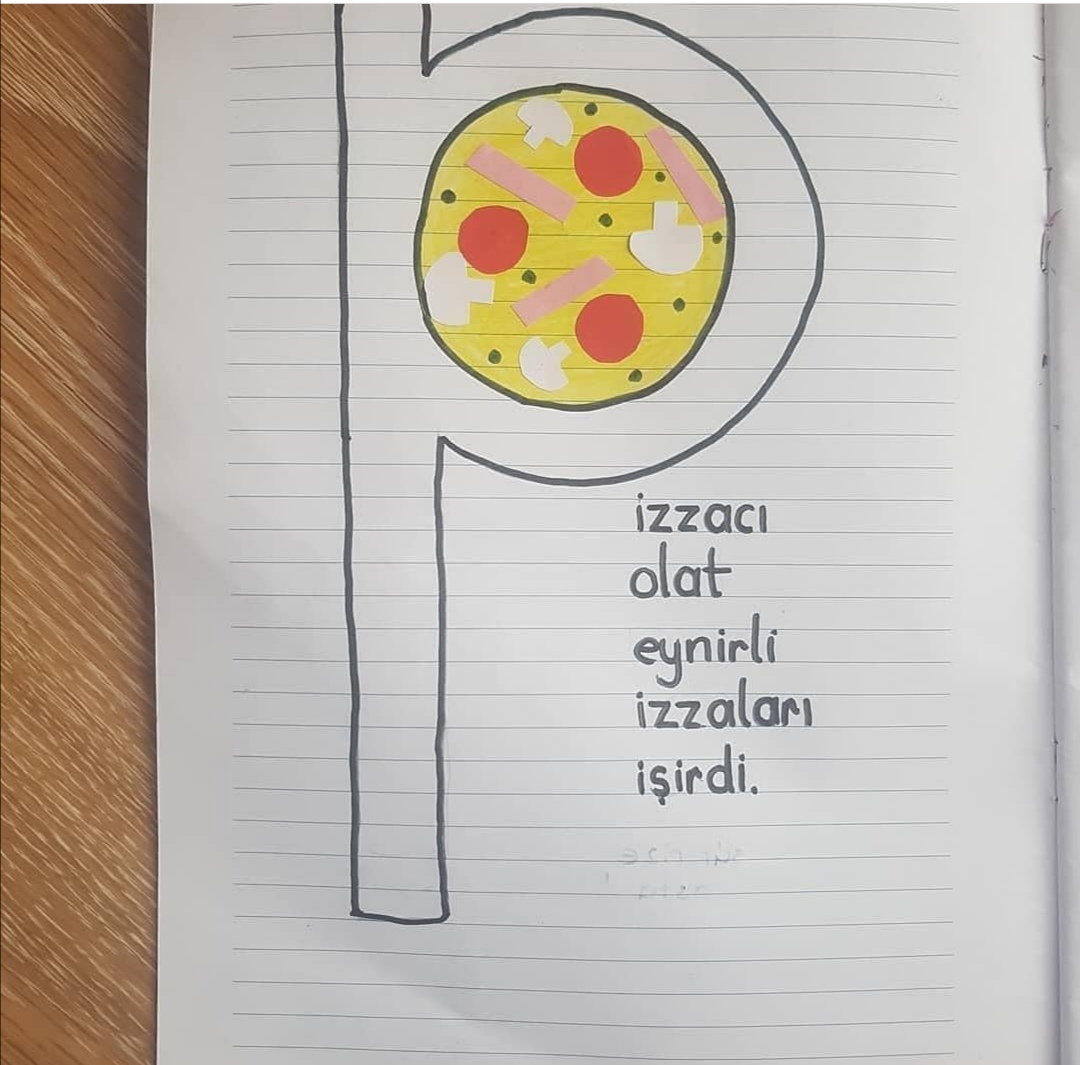 p
izzacı
olat
eynirli
izzaları
işirdi.